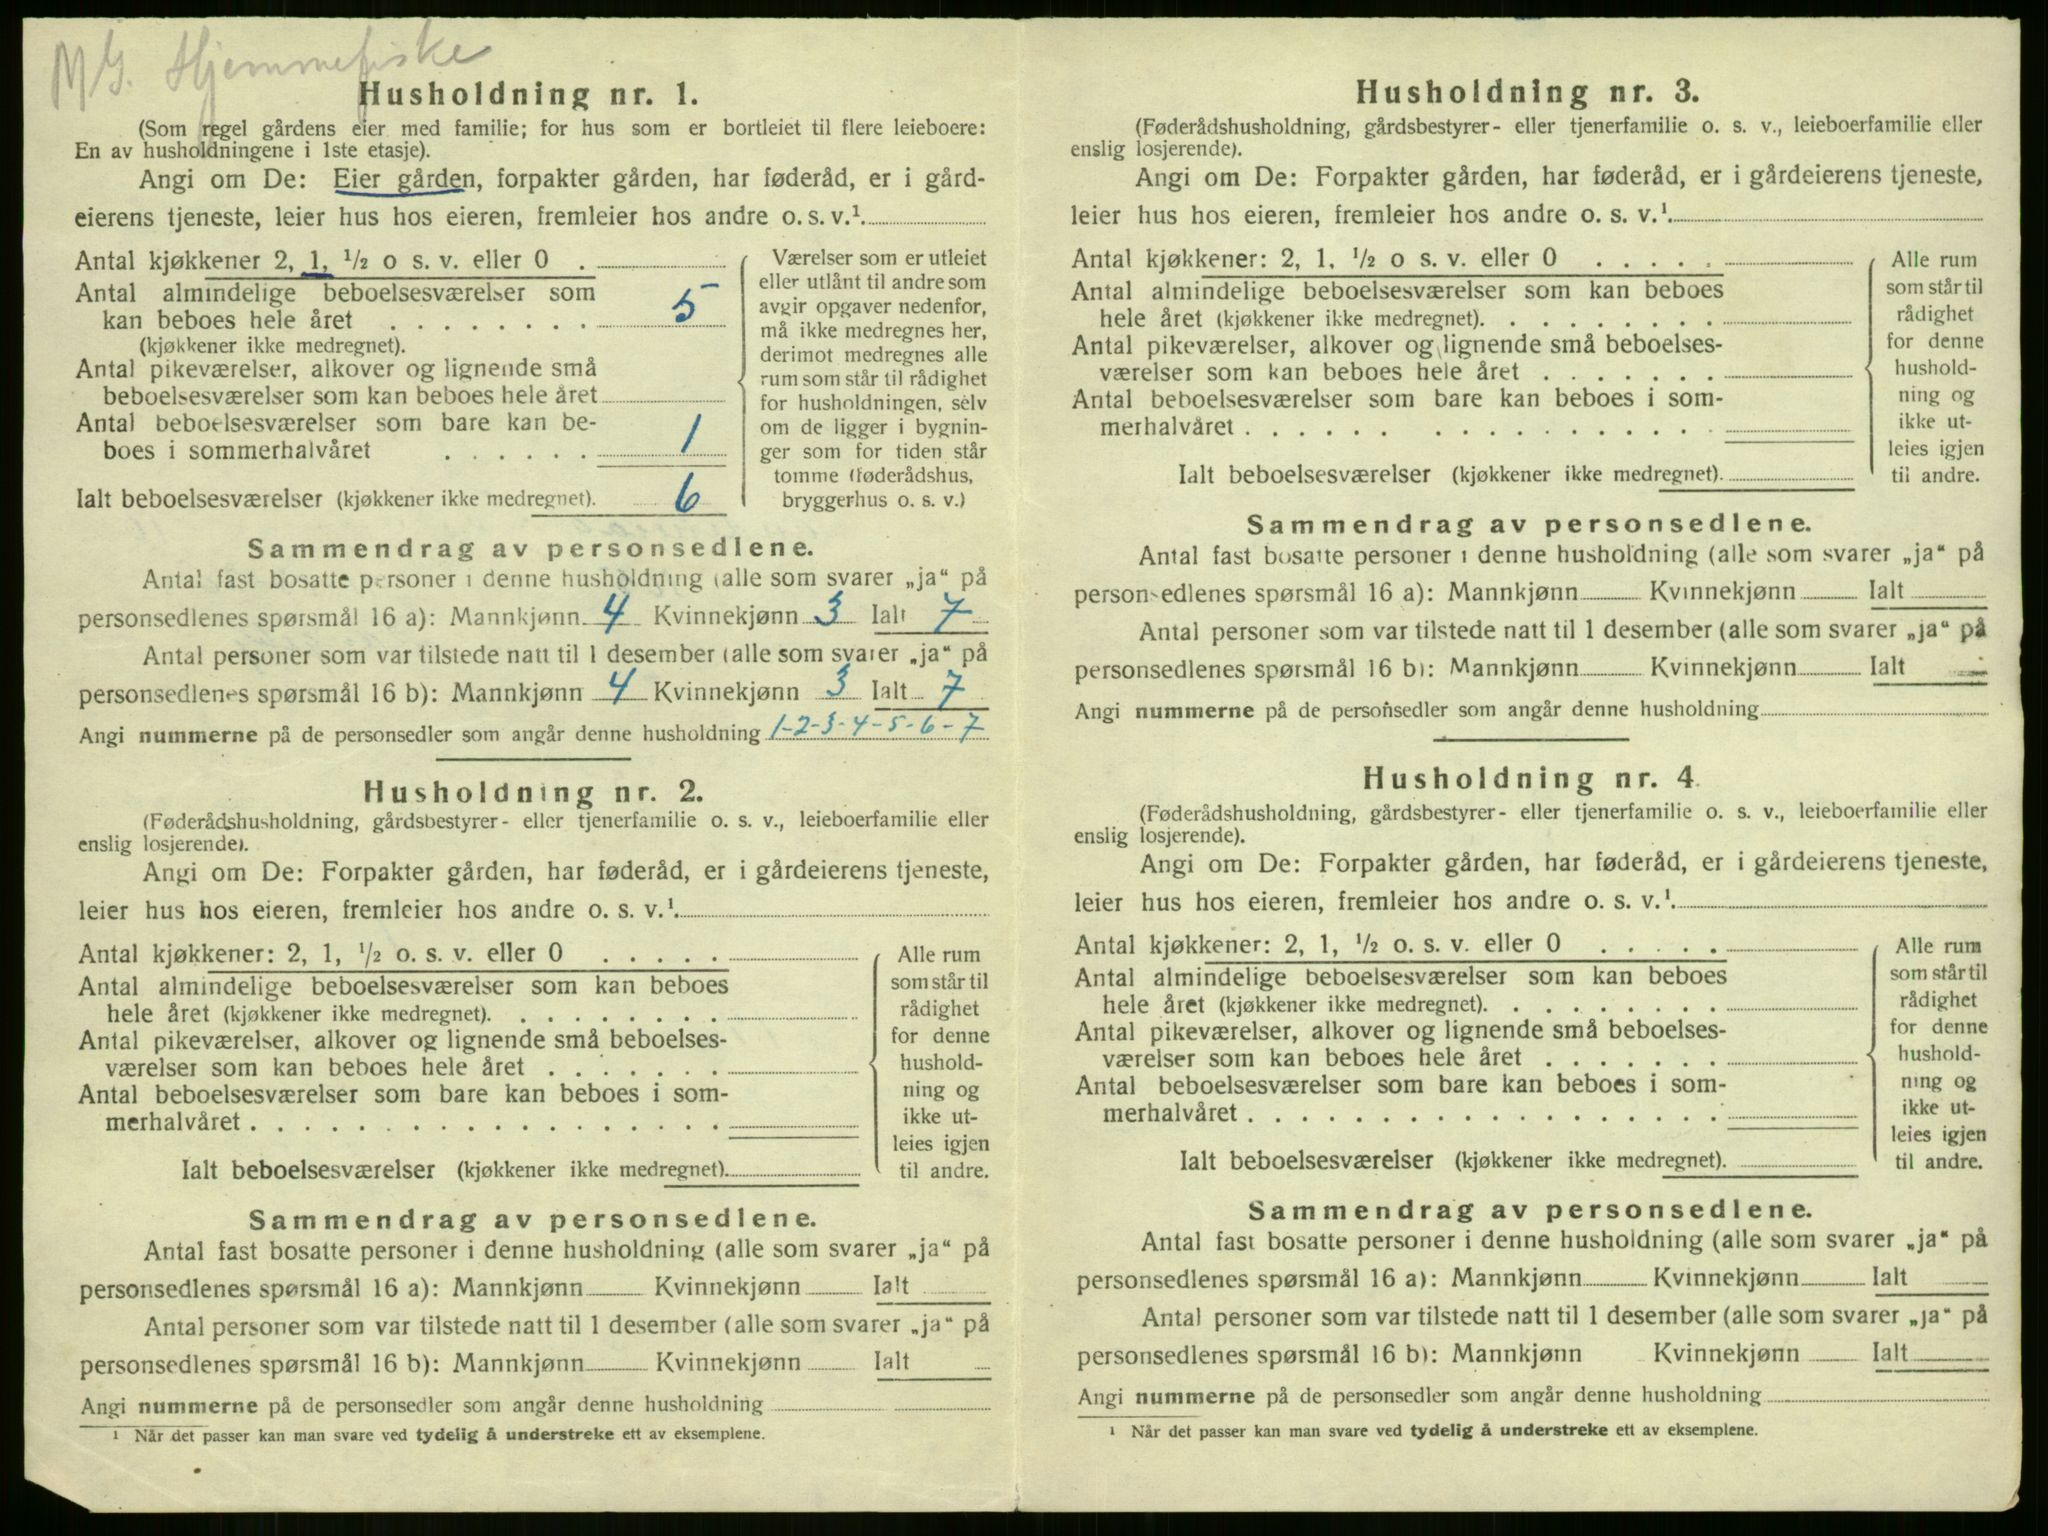 MG. Hjemmefiske
Husholdning nr. 1.
(Som regel gårdens eier med familie; for hus som er bortleiet til flere leieboere:
En av husholdningene i 1ste etasje).
Angi om De: Eier gården, forpakter gården, har føderåd, er i gård-
eierens tjeneste, leier hus hos eieren, fremleier hos andre o. s. v.¹.
Antal kjøkkener 2, 1, ½ o s. v. eller 0 .
Antal almindelige beboelsesværelser som
kan beboes hele året . . . . . . . . 5
(kjøkkener ikke medregnet).
Antal pikeværelser, alkover og lignende små
beboelsesværelser som kan beboes hele året
Antal beboelsesværelser som bare kan be-
boes i sommerhalvåret . . . . . . 1
Ialt beboelsesværelser (kjøkkener ikke medregnet). 6
Værelser som er utleiet
eller utlånt til andre som
avgir opgaver nedenfor,
må ikke medregnes her,
derimot medregnes alle
rum som står til rådighet
for husholdningen, selv
om de ligger i bygnin-
ger som for tiden står
tomme (føderådshus,
bryggerhus o. s. v.)
Sammendrag av personsedlene.
Antal fast bosatte personer i denne husholdning (alle som svarer „ja“ på
personsedlenes spørsmål 16 a): Mannkjønn 4 Kvinnekjønn 3 Ialt 7
Antal personer som var tilstede natt til 1 desember (alle som svarer „ja“ på
personsedlenes spørsmål 16 b): Mannkjønn 4 Kvinnekjønn 3 Ialt 7
Angi nummerne på de personsedler som angår denne husholdning 1-2-3-4-5-6-7
Husholdning nr. 2.
(Føderådshusholdning, gårdsbestyrer- eller tjenerfamilie o. s. v., leieboerfamilie eller
enslig losjerende).
Angi om De: Forpakter gården, har føderåd, er i gårdeierens tjeneste,
leier hus hos eieren, fremleier hos andre o. s. v.¹.
Antal kjøkkener: 2, 1, ½ o. s. v. eller 0 . . . . .
Antal almindelige beboelsesværelser som kan beboes
hele året (kjøkkener ikke medregnet). . . . . . . . .
Antal pikeværelser, alkover og lignende små beboelses-
værelser som kan beboes hele året . . . . . . .
Antal beboelsesværelser som bare kan beboes i som-
merhalvåret . . . . . . . . . . . . . . . . . .
Ialt beboelsesværelser (kjøkkener ikke medregnet).
Alle rum
som står til
rådighet
for denne
hushold-
ning og
ikke ut-
leies igjen
til andre.
Sammendrag av personsedlene.
Antal fast bosatte personer i denne husholdning (alle som svarer „ja“ på
personsedlenes spørsmål 16 a): Mannkjønn Kvinnekjønn Ialt
Antal personer som var tilstede natt til 1 desember (alle som svarer „ja“ på
personsedlenes spørsmål 16 b): Mannkjønn Kvinnekjønn Ialt
Angi nummerne på de personsedler som angår denne husholdning
¹ Når det passer kan man svare ved tydelig å understreke ett av eksemplene.
Husholdning nr. 3.
(Føderådshusholdning, gårdsbestyrer- eller tjenerfamilie o. s. v., leieboerfamilie eller
enslig losjerende).
Angi om De: Forpakter gården, har føderåd, er i gårdeierens tjeneste,
leier hus hos eieren, fremleier hos andre o. s. v.¹.
Antal kjøkkener: 2, 1, ½ o s. v. eller 0 . . . . .
Antal almindelige beboelsesværelser som kan beboes
hele året (kjøkkener ikke medregnet). . . . . . . . .
Antal pikeværelser, alkover og lignende små beboelses-
værelser som kan beboes hele året . . . . . . .
Antal beboelsesværelser som bare kan beboes i som-
merhalvåret . . . . . . . . . . . . . . . . .
Ialt beboelsesværelser (kjøkkener ikke medregnet).
Alle rum
som står til
rådighet
for denne
hushold-
ning og
ikke ut-
leies igjen
til andre.
Sammendrag av personsedlene.
Antal fast bosatte personer i denne husholdning (alle som svarer „ja“ på
personsedlenes spørsmål 16 a): Mannkjønn Kvinnekjønn Ialt
Antal personer som var tilstede natt til 1 desember (alle som svarer „ja“ på
personsedlenes spørsmål 16 b): Mannkjønn Kvinnekjønn Ialt
Angi nummerne på de personsedler som angår denne husholdning
Husholdning nr. 4
(Føderådshusholdning, gårdsbestyrer- eller tjenerfamilie o. s. v., leieboerfamilie eller
enslig losjerende).
Angi om De: Forpakter gården, har føderåd, er i gårdeierens tjeneste,
leier hus hos eieren, fremleier hos andre o. s. v.¹.
Antal kjøkkener: 2, 1, ½ o. s. v. eller 0 . . . . .
Antal almindelige beboelsesværelser som kan beboes
hele året (kjøkkener ikke medregnet). . . . . . . . .
Antal pikeværelser, alkover og lignende små beboelses-
værelser som kan beboes hele året . . . . . . .
Antal beboelsesværelser som bare kan beboes i som-
merhalvåret . . . . . . . . . . . . . . . . . .
Ialt beboelsesværelser (kjøkkener ikke medregnet).
Alle rum
som står til
rådighet
for denne
hushold-
ning og
ikke ut-
leies igjen
til andre.
Sammendrag av personsedlene.
Antal fast bosatte personer i denne husholdning (alle som svarer „ja“ på
personsedlenes spørsmål 16 a): Mannkjønn Kvinnekjønn Ialt
Antal personer som var tilstede natt til 1 desember (alle som svarer „ja“ på
personsedlenes spørsmål 16 b): Mannkjønn Kvinnekjønn Ialt
Angi nummerne på de personsedler som angår denne husholdning
¹ Når det passer kan man svare ved tydelig å understreke ett av eksemplene.